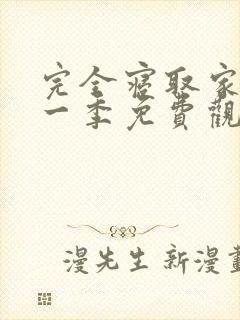 完全寢取家
一季免費觀
漫先生新漫畫